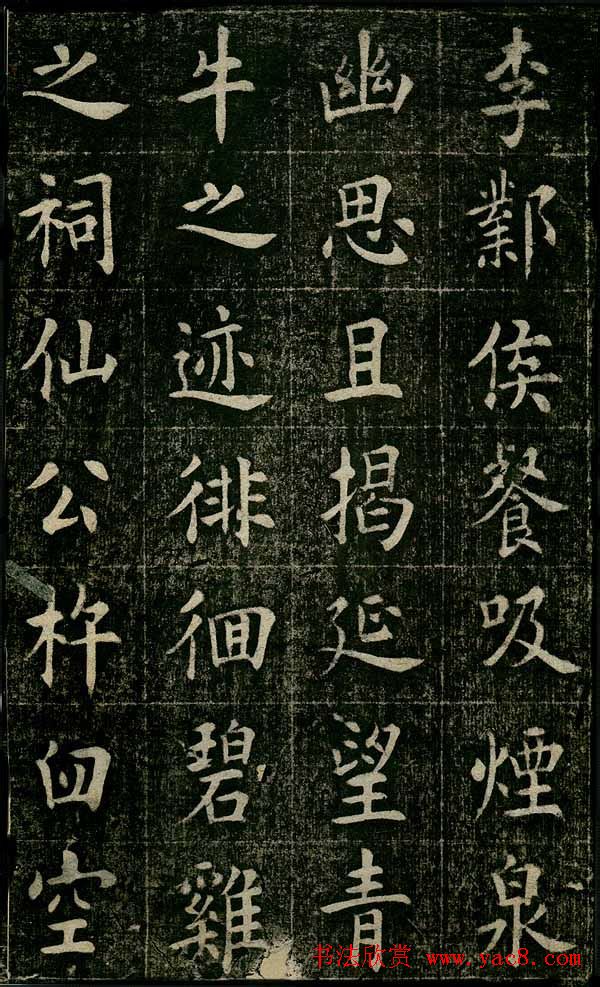 李鄴侯餐吸煙泉
幽思且揭延望青
牛之迹徘徊碧雞
之祠仙公杵臼空
书法欣赏 www.yac8.com